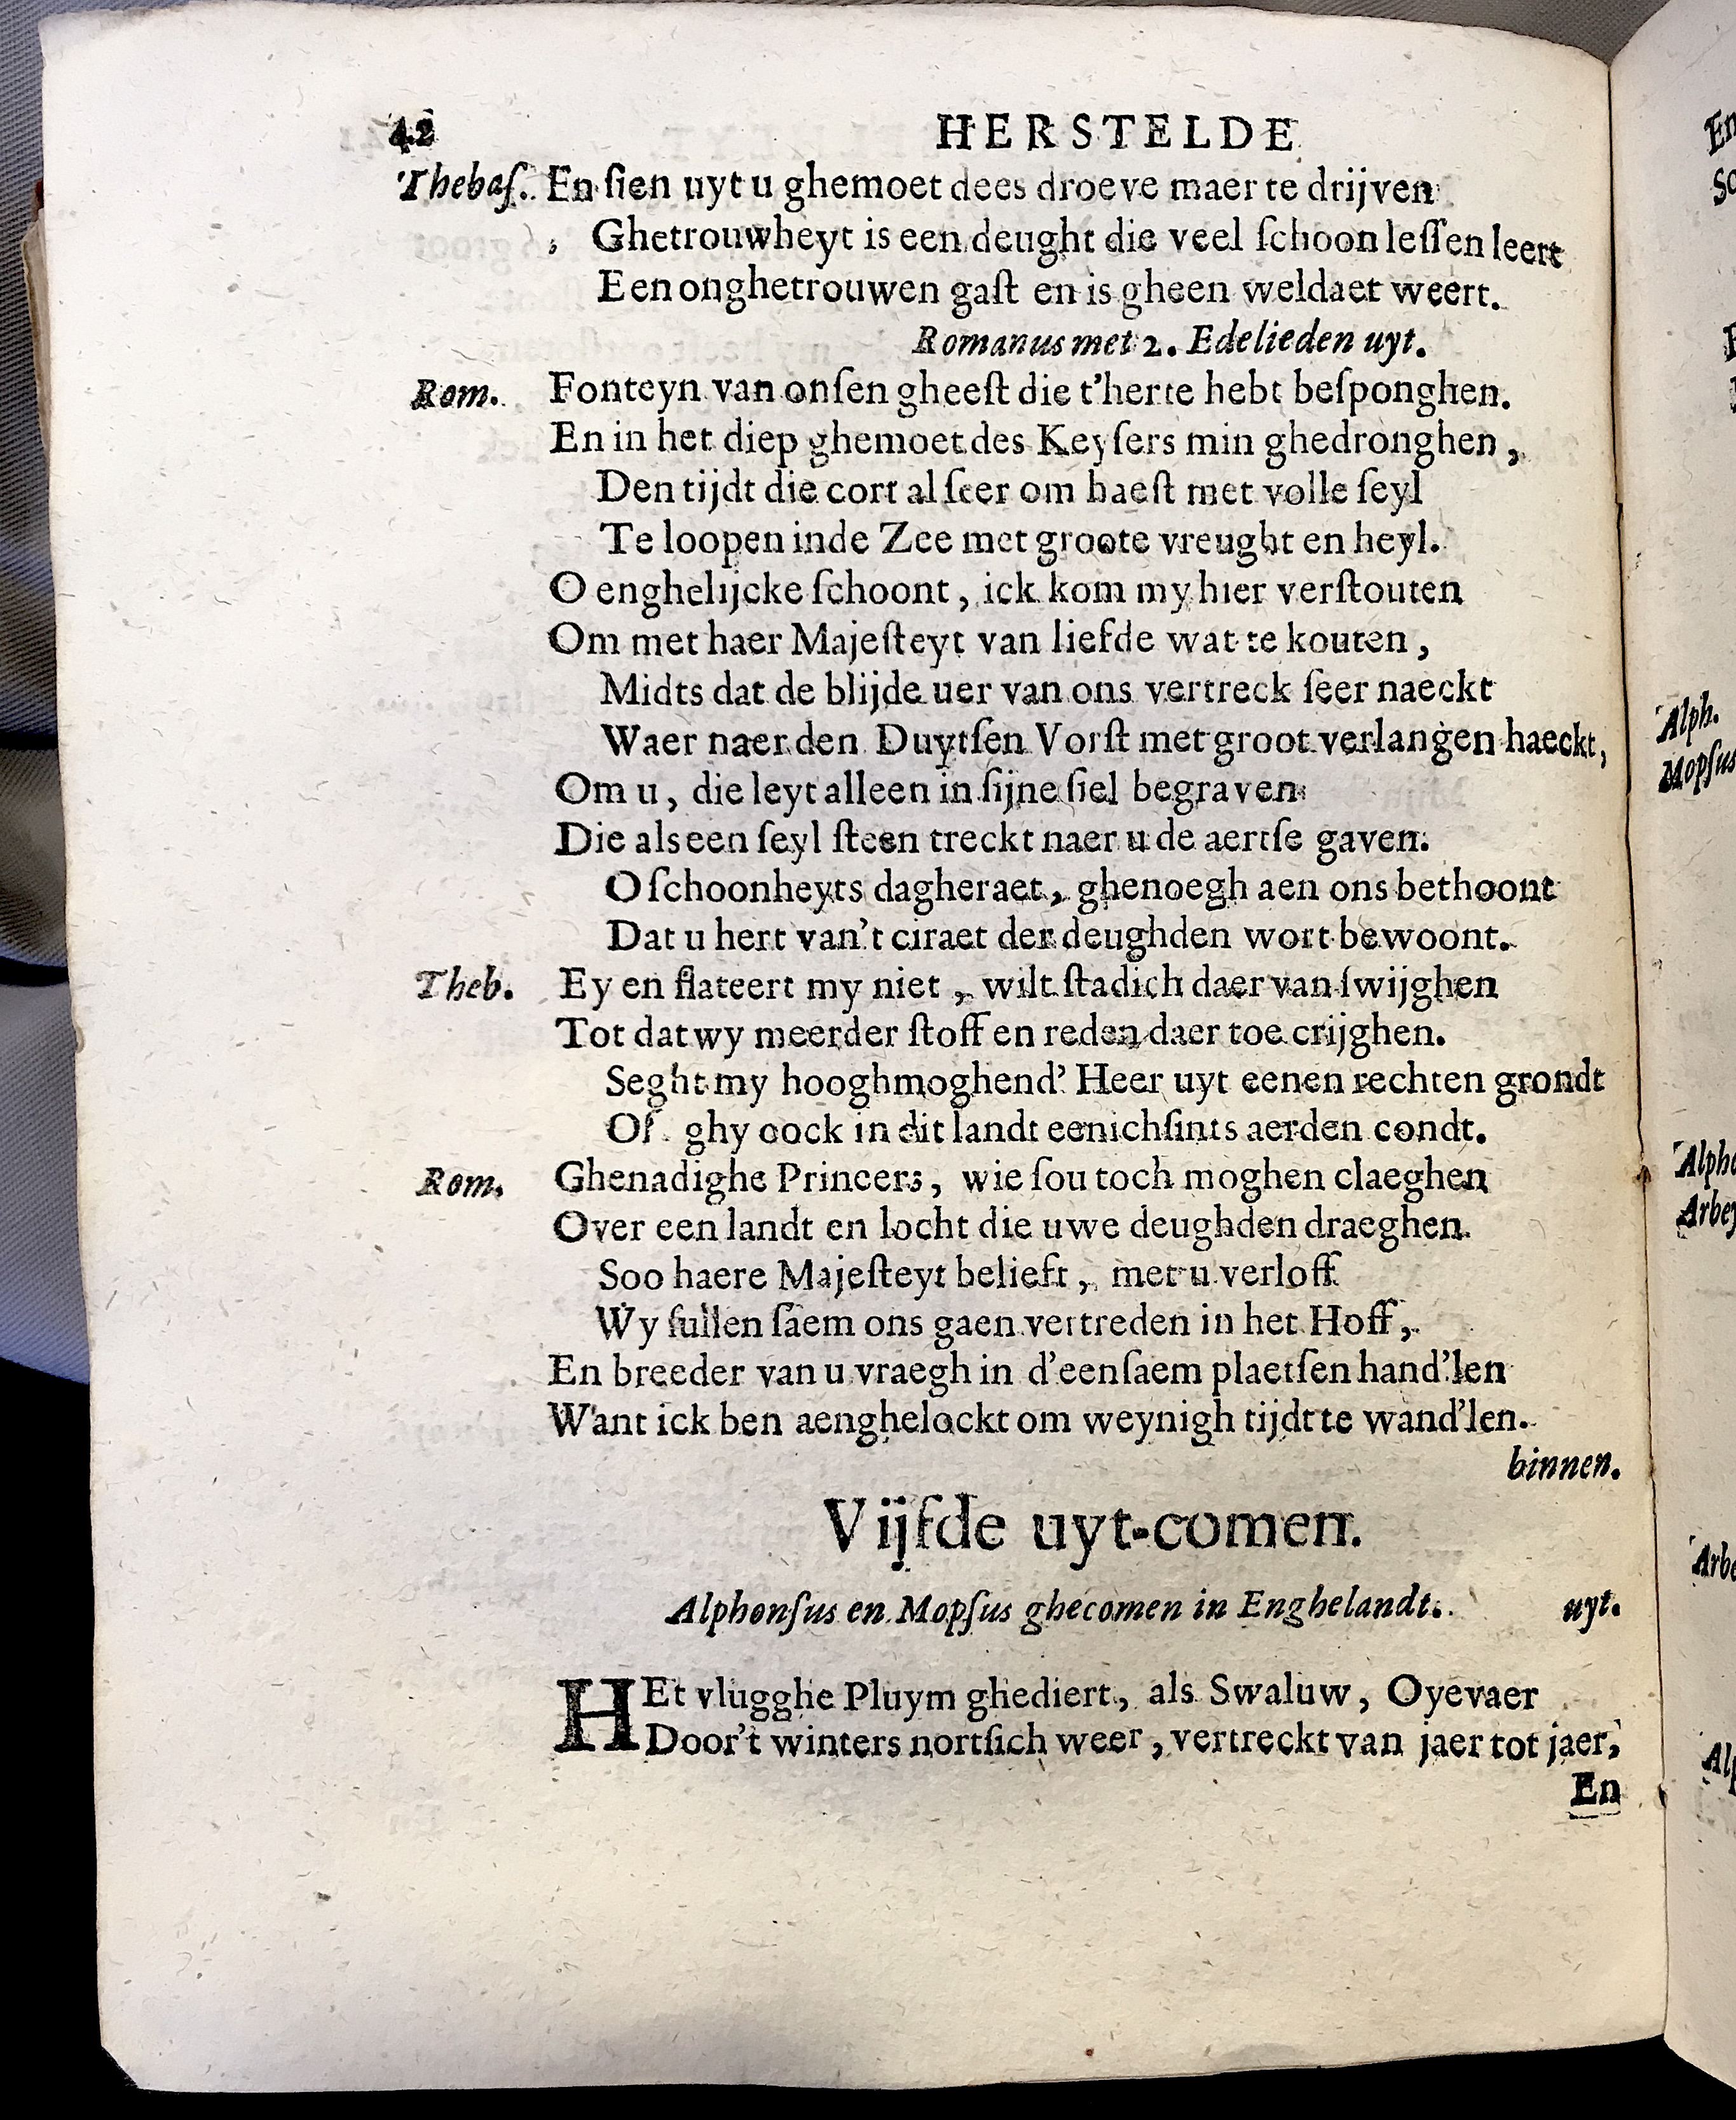 42 HERSTELDE
Thebaſ. En ſien uyt u ghemoet dees droeve maer te drijven
Ghetrouwheyt is een deught die veel ſchoon leſſen leert
Een onghetrouwen gaſt en is gheen weldaet weert.
Romanus met 2. Edelieden uyt.
Rom. Fonteyn van onſen gheeſt die t'herte hebt beſponghen.
En in het diep ghemoet des Keyſers min ghedronghen,
Den tijdt die cort al ſeer om haeſt met volle ſeyl
Te loopen inde Zee met groote vreught en heyl.
O enghelijcke ſchoont, ick kom my hier verſtouten
Om met haer Majeſteyt van liefde wat te kouten,
Midts dat de blijde uer van ons vertreck ſeer naeckt
Waer naer den Duytſen Vorſt met groot verlangen haeckt,
Om u, die leyt alleen in ſijne ſiel begraven
Die als een ſeyl ſteen treckt naer u de aertſe gaven.
O ſchoonheyts dagheraet, ghenoegh aen ons bethoont
Dat u hert van't ciraet der deughden wort bewoont.
Theb. Ey en flateert my niet, wilt ſtadich daer van ſwijghen
Tot dat wy meerder ſtoff en reden daer toe crijghen.
Seght my hooghmoghend' Heer uyt eenen rechten grondt
Of ghy oock in dit landt eenichſints aerden condt.
Rom. Ghenadighe Princers, wie ſou toch moghen claeghen
Over een landt en locht die uwe deughden draeghen.
Soo haere Majeſteyt belieft, met u verloff
Wy ſullen ſaem ons gaen vertreden in het Hoff,
En breeder van u vraegh in d'eenſaem plaetſen hand'len
Want ick ben aenghelockt om weynigh tijdt te wand'len.
binnen.
Vijfde uyt-comen.
Alphonſus en Mopſus ghecomen in Enghelandt. uyt.
HEt vlugghe Pluym ghediert, als Swaluw, Oyevaer
Door't winters nortſich weer, vertreckt van jaer tot jaer,
En
Alph.
Mopſus